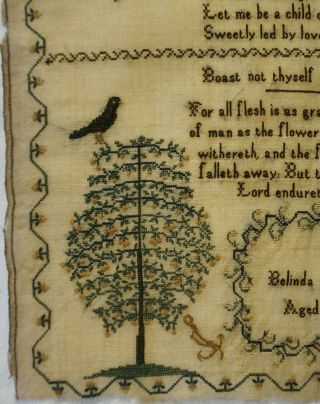 Let me be a child o
Sweetly led by lov
Boast not thyself
For all flesh is as gra
of man as the flower
withereth, and the f
falleth away: But t
Lord enduret
Belinda
Aged